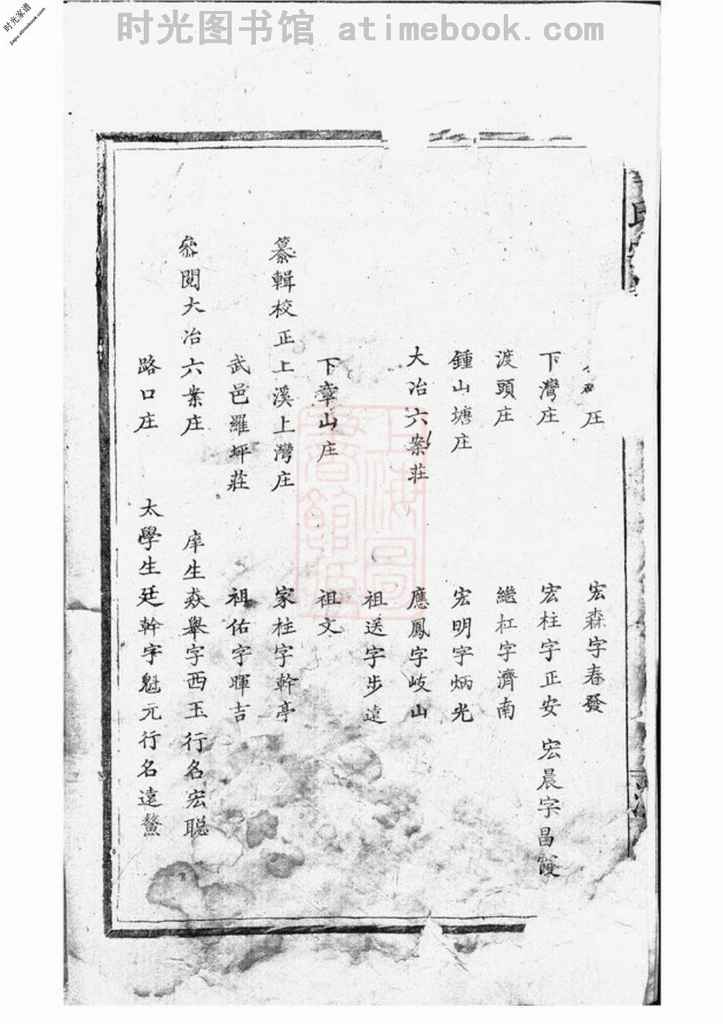 时光图书馆 atimebook.com
时光家谱
庄 宏森字春發
下灣庄 宏柱字正安 宏晨字昌霞
渡頭庄 繼杠字濟南
鍾山塘庄 宏明字炳光
大冶六案莊 應鳳字岐山
祖送字步遠
下章山庄 祖文
纂輯校正上溪上灣庄 家柱字幹亭
武邑羅坪莊 祖佑字暉吉
叅閱大冶六案庄 庠生焱舉字西玉行名宏聪
路口庄 太學生廷幹字魁元行名遠鰲